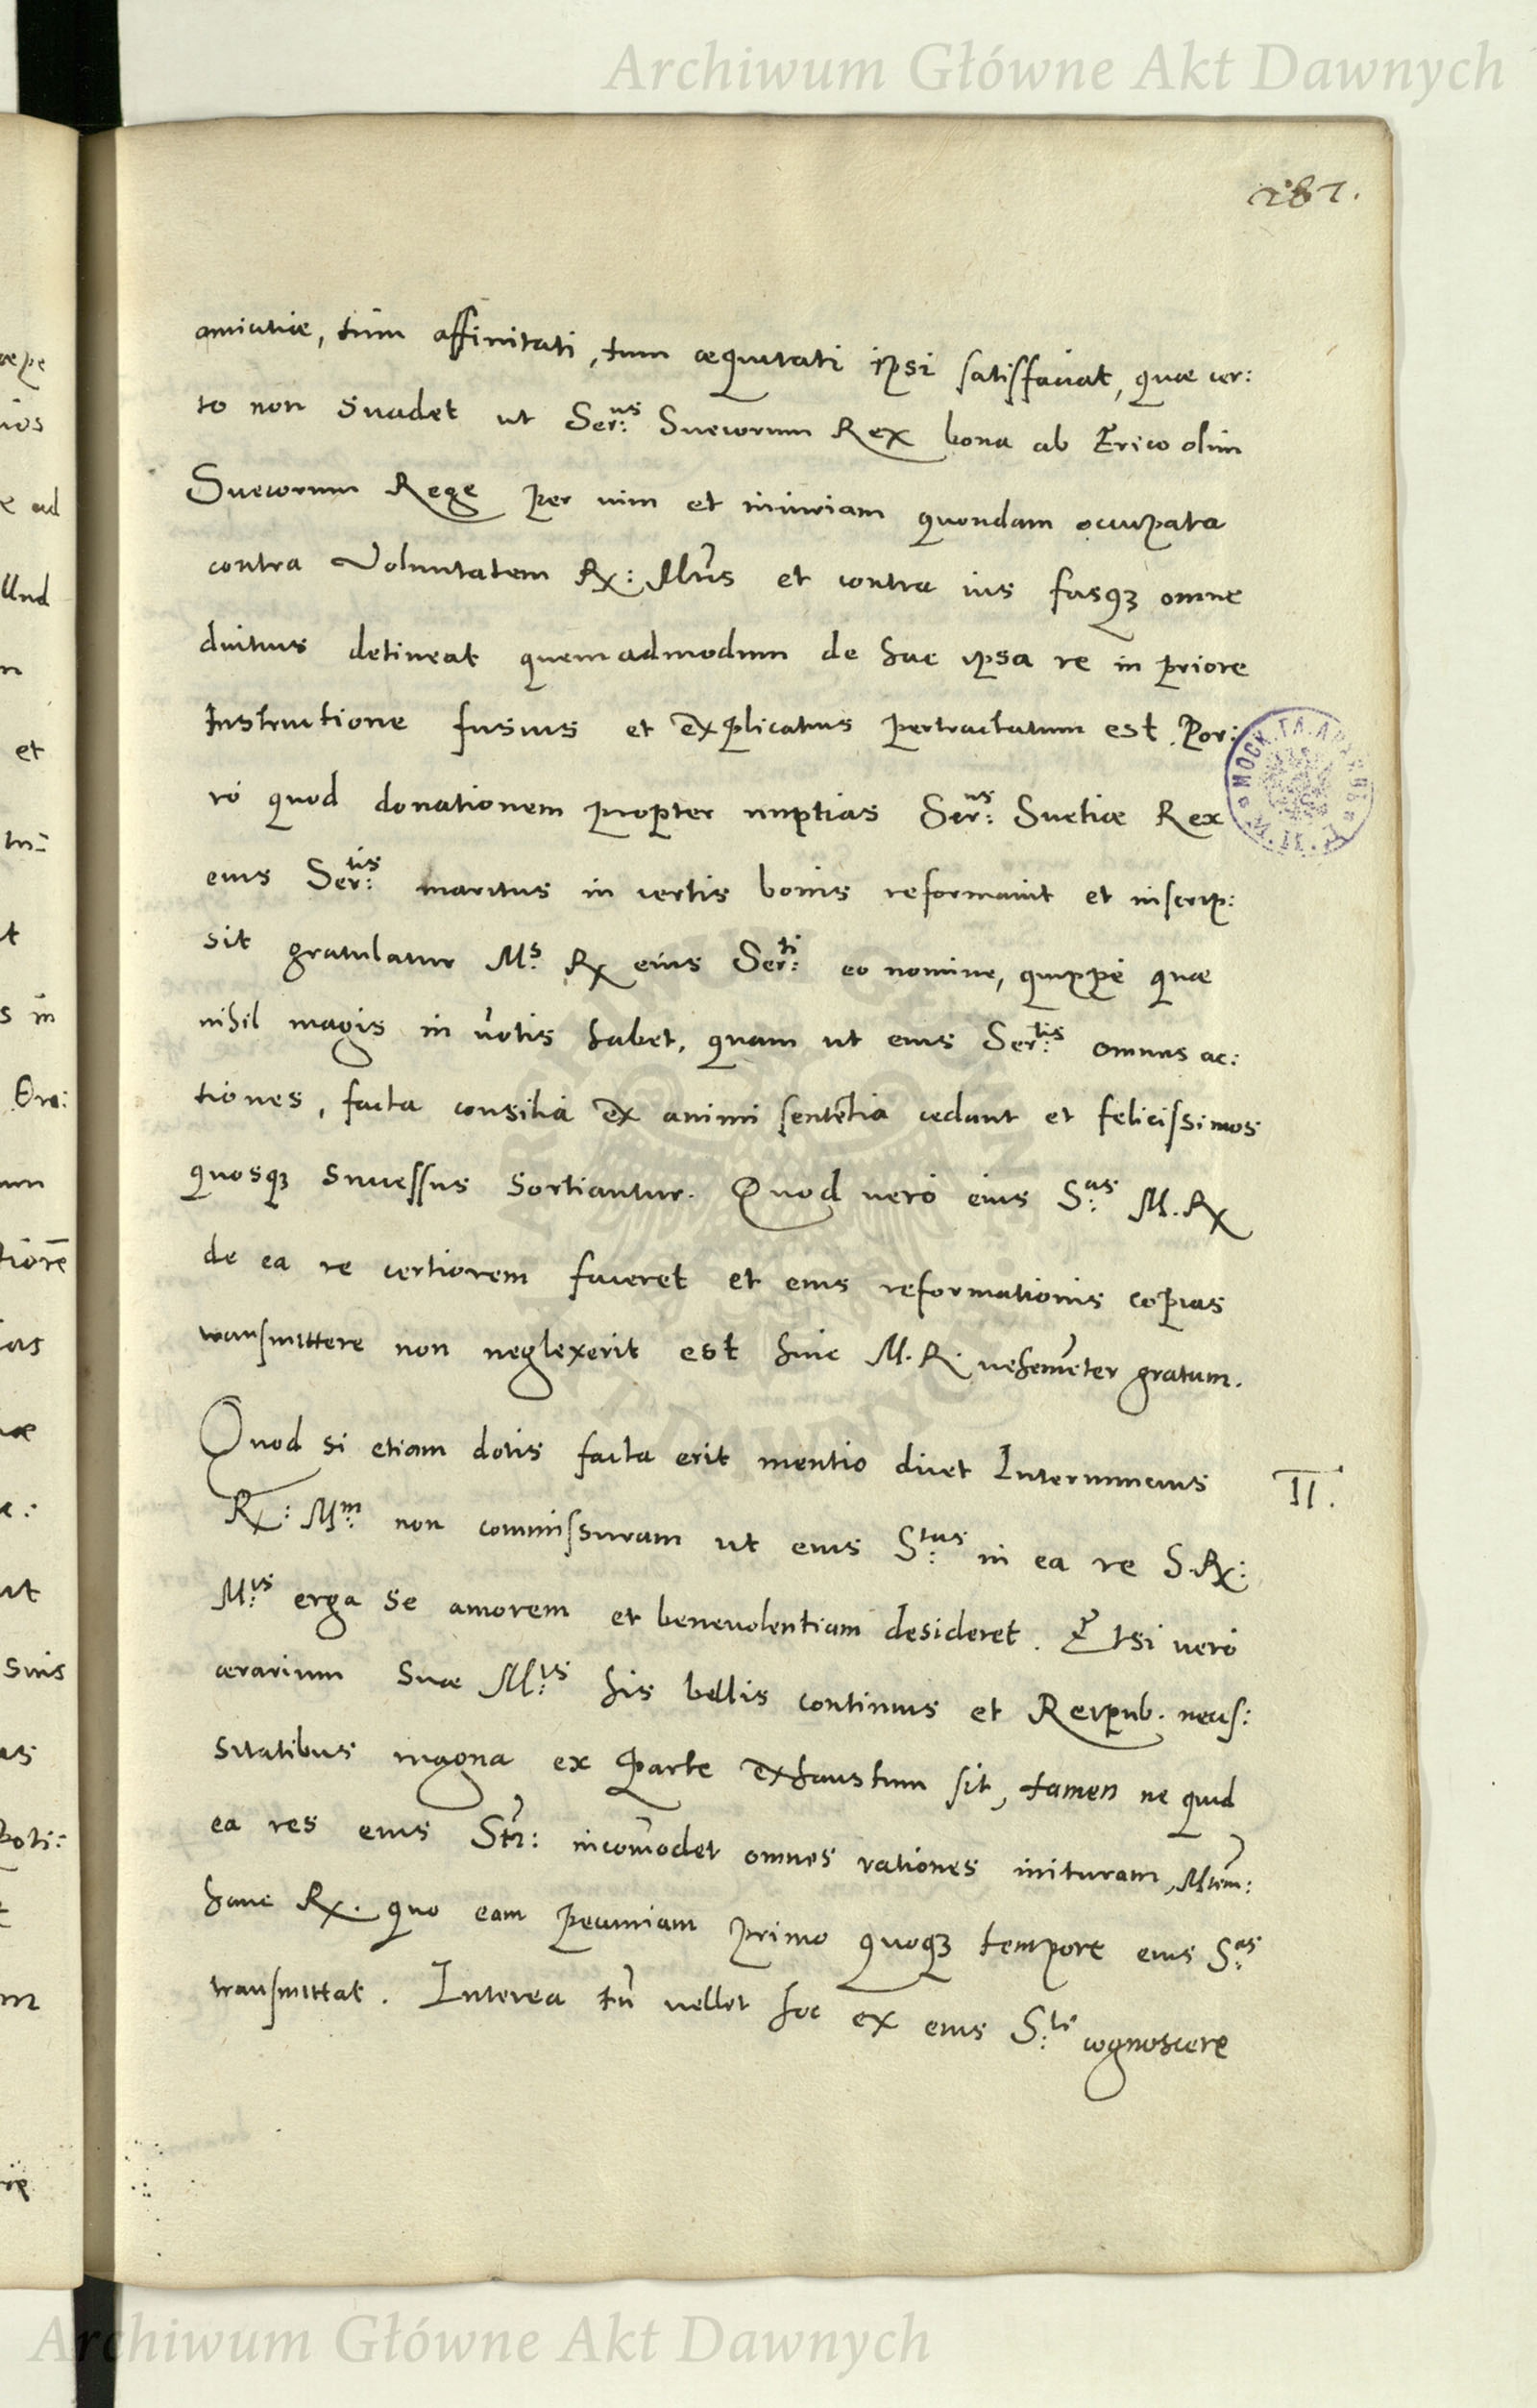 Archiwum Główne Akt Dawnych
181.
amicitiæ, tùm affinitati, tum æquitati ipsi satisfaciat, quæ cer:
to non suadet ut Ser:us Suecorum Rex bona ab Erico olim
Suecorum Rege per uim et iniuriam quondam occupata
contra Voluntatem Rx: Mtis et contra ius fasqz omne
diutius detineat quemadmodum de hac ipsa re in priore
Instructione fusius et explicatius pertractatum est. Por:
rò quod donationem propter nuptias Ser:us Suetiæ Rex
eius Ser:tis maritus in certis bonis reformauit et inscrip:
sit gratulatur M:s Rx eius Ser:ti eo nomine, quippè quæ
nihil magis in uotis habet, quam ut eius Ser:tis omnes ac:
tiones, facta consilia ex animi sententia cedant et felicissimos
quosqz successus sortiantur. Quod verò eius S:as M. Rx
de ea re certiorem faceret et eius reformationis copias
transmittere non neglexerit est huic M. R. uehemẽter gratum.
Quod si etiam dotis facta erit mentio dicet Internuncius
II.
Rx: M:m non commissuram ut eius S:tas in ea re S. Rx:
M:tis erga se amorem et beneuolentiam desideret. Etsi verò
ærarium suæ M:tis his bellis continuis et Reipub. neces:
sitatibus magna ex parte exhaustum sit, tamen ne quid
ea res eius Sti: incom̃odet omnes rationes inituram, Mtem:
hanc Rx. quo eam pecuniam primo quoqz tempore eius S:as
transmittat. Interea tñ vellet hoc ex eius S:ti cognoscere
Archiwum Główne Akt Dawnych